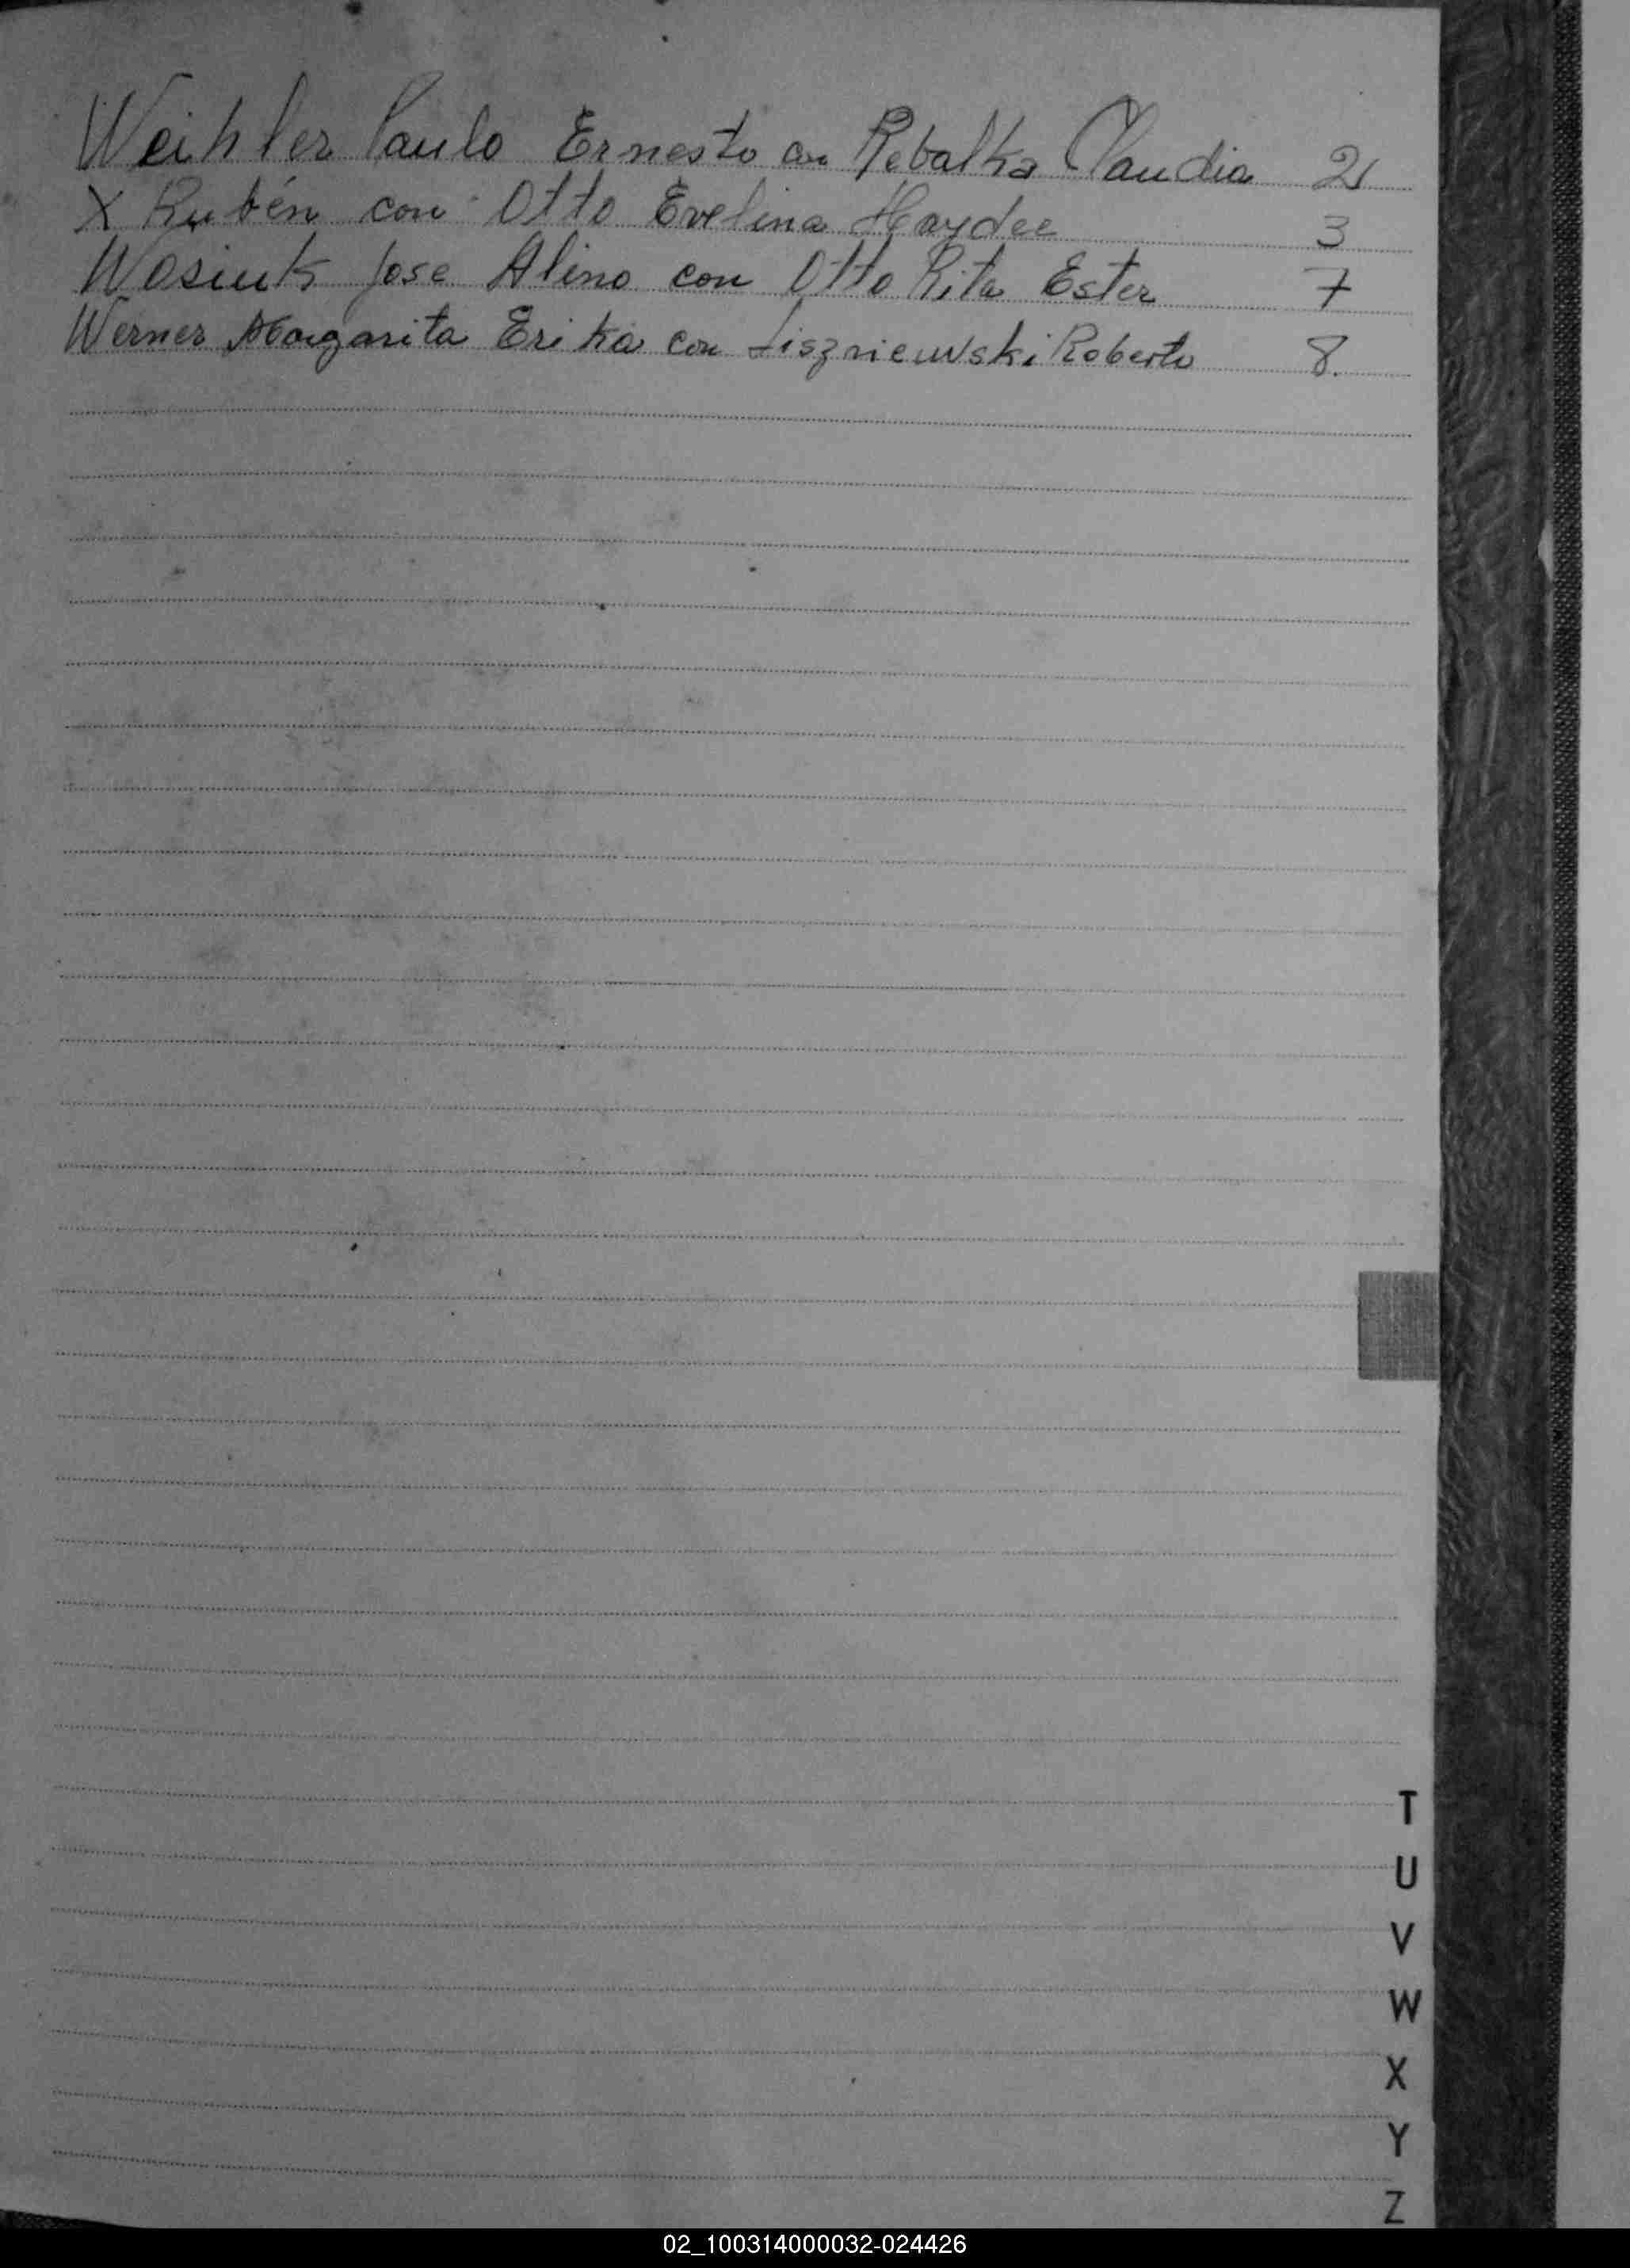 Weihler Paulo Ernesto con Rebalka Claudia 2
X Rubén con Otto Evelina Haydee 3
Wosiuk Jose Alino con Otto Rita Ester 7
Werner Margarita Erika con Liszniewski Roberto 8.
T
U
V
W
X
Y
Z
02_100314000032-024426